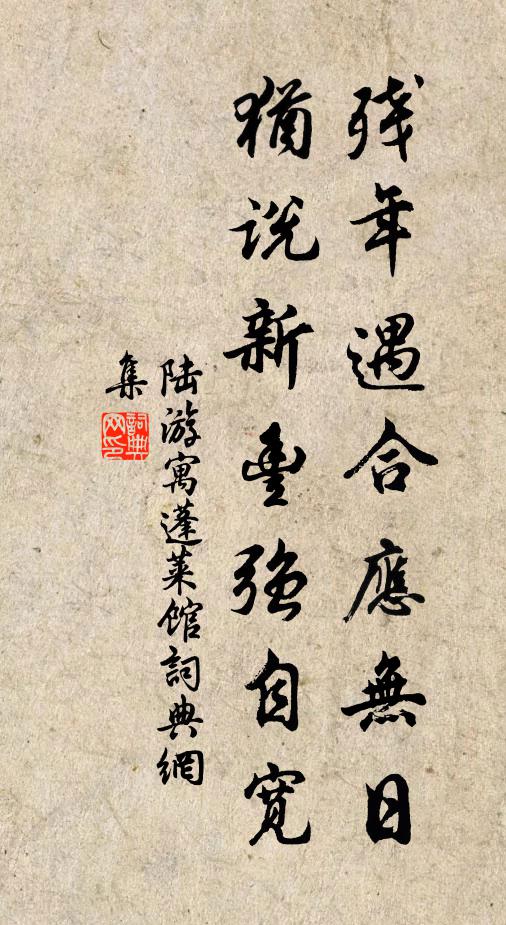 残年遇合應無日
猶说新豊强自寬
陆游寓蓬莱馆詞典網
集
詞典
网印